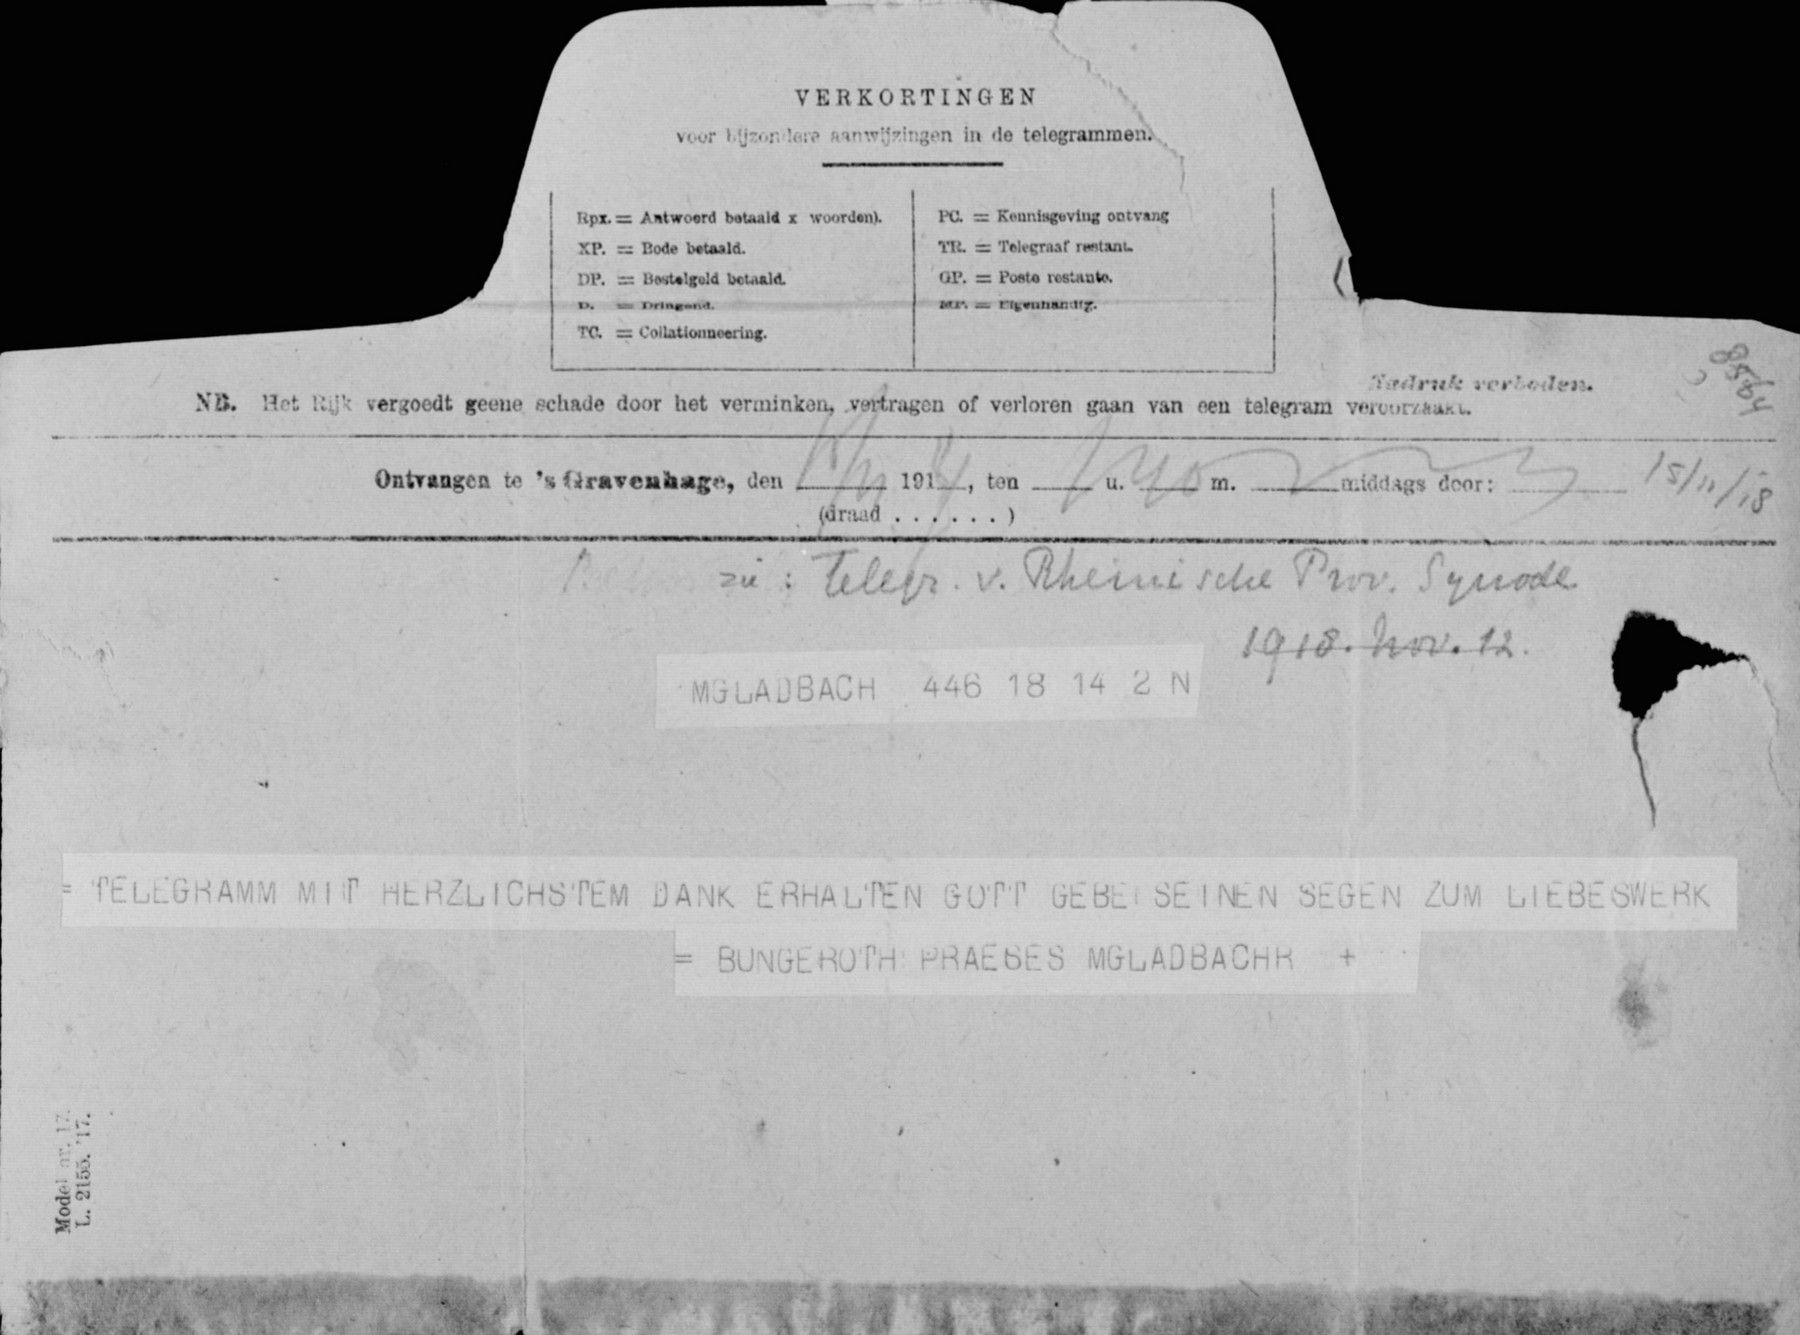 VERKORTINGEN
voor bijzondere aanwijzingen in de telegrammen.
Rpx. = Antwoord betaald x woorden).
XP. = Bode betaald.
DP. = Bestelgeld betaald.
D. = Dringend.
TC. = Collationneering.
PC. = Kennisgeving ontvang
TR. = Telegraaf restant.
GP. = Poste restante.
MP. = Eigenhandig.
8564
Nadruk verboden.
NB. Het Rijk vergoedt geene schade door het verminken, vertragen of verloren gaan van een telegram veroorzaakt.
Ontvangen te 's Gravenhage, den 191 , ten u. 40 m. middags door: 15/11/18
(draad ......)
zu : Telegr. v. Rheinische Prov. Synode
1918. Nov. 12.
MGLADBACH 446 18 14 2 N
= TELEGRAMM MIT HERZLICHSTEM DANK ERHALTEN GOTT GEBE SEINEN SEGEN ZUM LIEBESWERK
= BUNGEROTH PRAESES MGLADBACHR +
Model nr. 17.
L. 2155. '17.